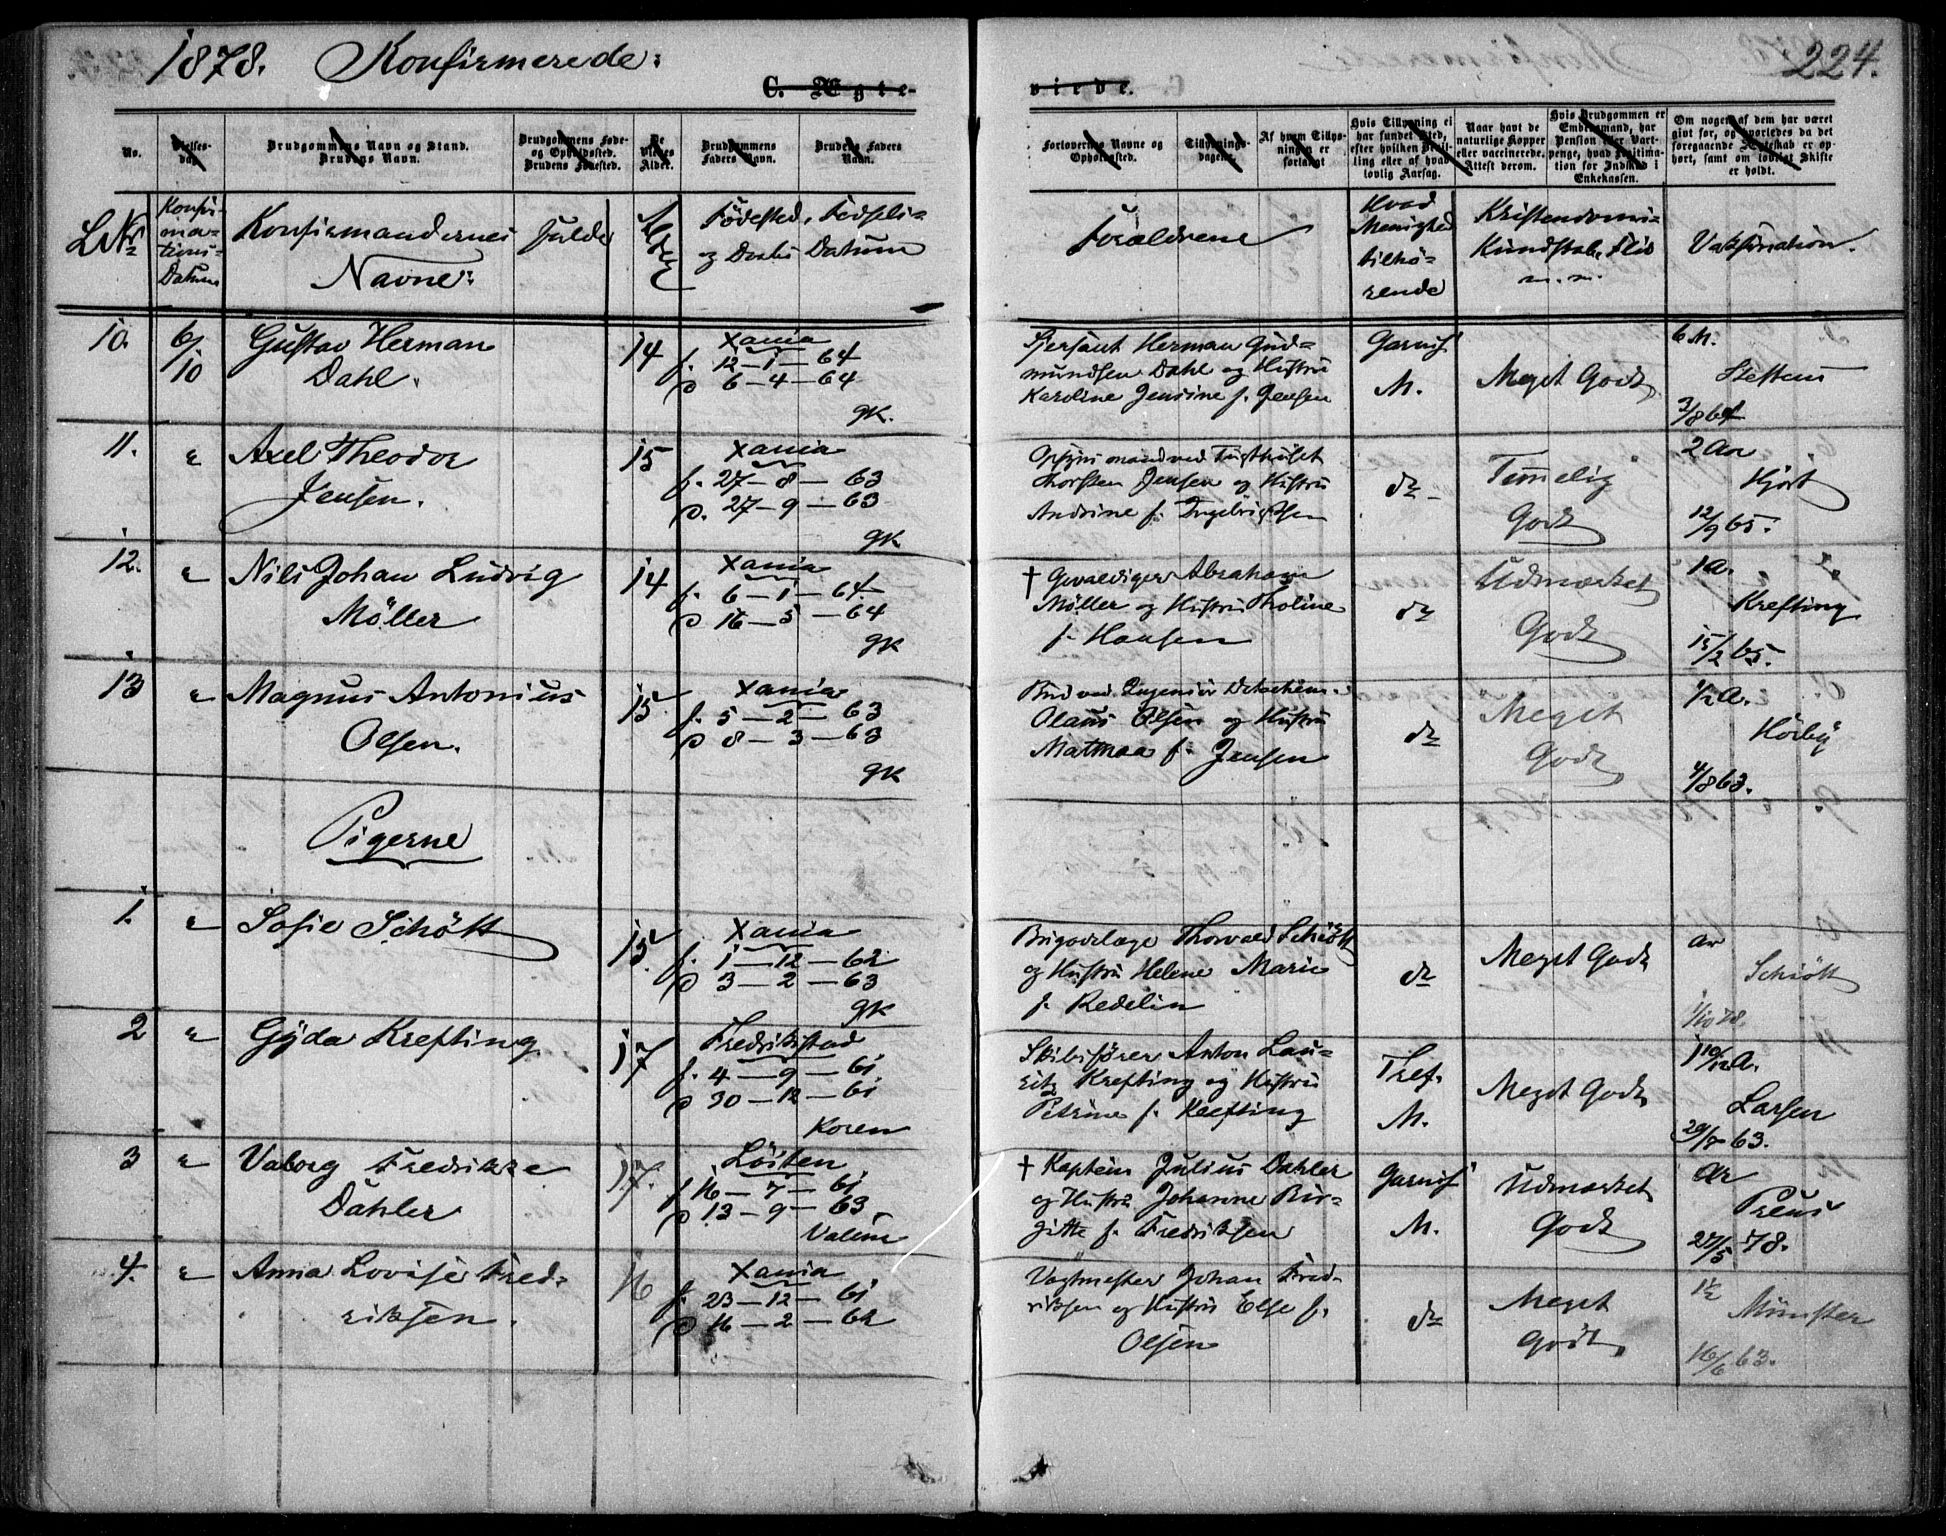 1878. Konfirmerede:
224.
C. Ægte-
viede.
No.
Vielses-
dag.
Brudgommens Navn og Stand.
Brudens Navn.
Brudgommens Føde-
og Opholdssted.
Brudens Fødested.
De
Viedes
Alder.
Brudgommens
Faders Navn.
Brudens Faders
Navn.
Forlovernes Navne og
Opholdssted.
Tillysnings-
dagene.
Af hvem Tillys-
ningen er
forlangt
Hvis Tillysning ei
har fundet Sted,
efter hvilken Bevil-
ling eller af hvad
lovlig Aarsag.
Naar havt de
naturlige Kopper
eller vaccinerede.
Attest derom.
Hvis Brudgommen er
Embedsmand, har
Pension eller Vart-
penge, hvad Legitima-
tion for Indskud i
Enkekassen.
Om nogen af dem har været
givt før, og hvorledes da det
foregaaende Ægteskab er op-
hørt, samt om lovligt Skifte
er holdt.
L№
Konfir-
ma-
tions-
Datum
Konfirmandernes fulde
Navne:
Alder
Fødested, Fødsels-
og Daabs Datum
Forældrene
Hvad
Menighed
tilhø-
rende
Kristendoms-
Kundskab, Flid
m. m.
Vaksination.
10.
6/10
Gustav Herman
Dahl.
14
Xania
f. 12-1-64
D 6-4-64
gk.
Sersant Herman Gud-
mundsen Dahl og Hustru
Karoline Jensine f. Jensen
Garnis
M.
Meget Godt
6 M.
Steffens
3/8 64
11.
"
Axel Theodor
Jensen.
15
Xania
f. 27-8-63
D. 27-9-63
gk
Opsynsmand ved Tugthuset
Thorsten Jensen og Hustru
Andrine f. Ingebrigtsen
do
Temmelig
Godt
2 Aar
Hjort
12/9 65.
12.
"
Nils Johan Ludvig
Möller
14
Xania
f. 6-1-64
D 16-5-64
gk
† Gevaldiger Abraham
Møller og Hustru Tholine
f. Hansen
do
Udmærket
Godt
1 A.
Krefting
15/2 65.
13
"
Magnus Antonius
Olsen.
15
Xania
f. 5-2-63
D 8-3-63
gk
Bud ved Ingeniør Detachem.
Olaus Olsen og Hustru
Mathea f. Jensen
do
Meget
Godt
1/2 A.
Hörbÿ
4/8 63.
Pigerne
1.
"
Sofie Schött
15
Xania
f. 1-12-62
D 3-2-63
gk
Brigadelæge Thorvald Schiött
og Hustru Helene Marie
f. Redelin
do
Meget Godt
ar
Schiött
1/10 78.
2
"
Gyda Krefting
17
Fredrikstad
f. 4-9-61
D 30-12-61
Koren
Skibsfører Anton Lau-
ritz Krefting og Hustru
Petrine f. Krefting
Tref.
M.
Meget Godt
1 10/12 A.
Larsen
29/7 63.
3
"
Valborg Fredrikke
Dahler
17.
Löiten
f. 16-7-61
D 13-9-63
Valeur
† Kaptein Julius Dahler
og Hustru Johanne Bir-
gitte f. Fredriksen
Garnis
M.
Udmærket
Godt
ar
Preus
27/5 78.
4.
"
Anna Lovise Fred-
riksen.
16
Xania
f. 23-12-61
D 16-2-62
Vagtmester Johan Fred-
riksen og Hustru Else f.
Olsen
do
Meget
godt
1 1/2
Münster
16/6 63.